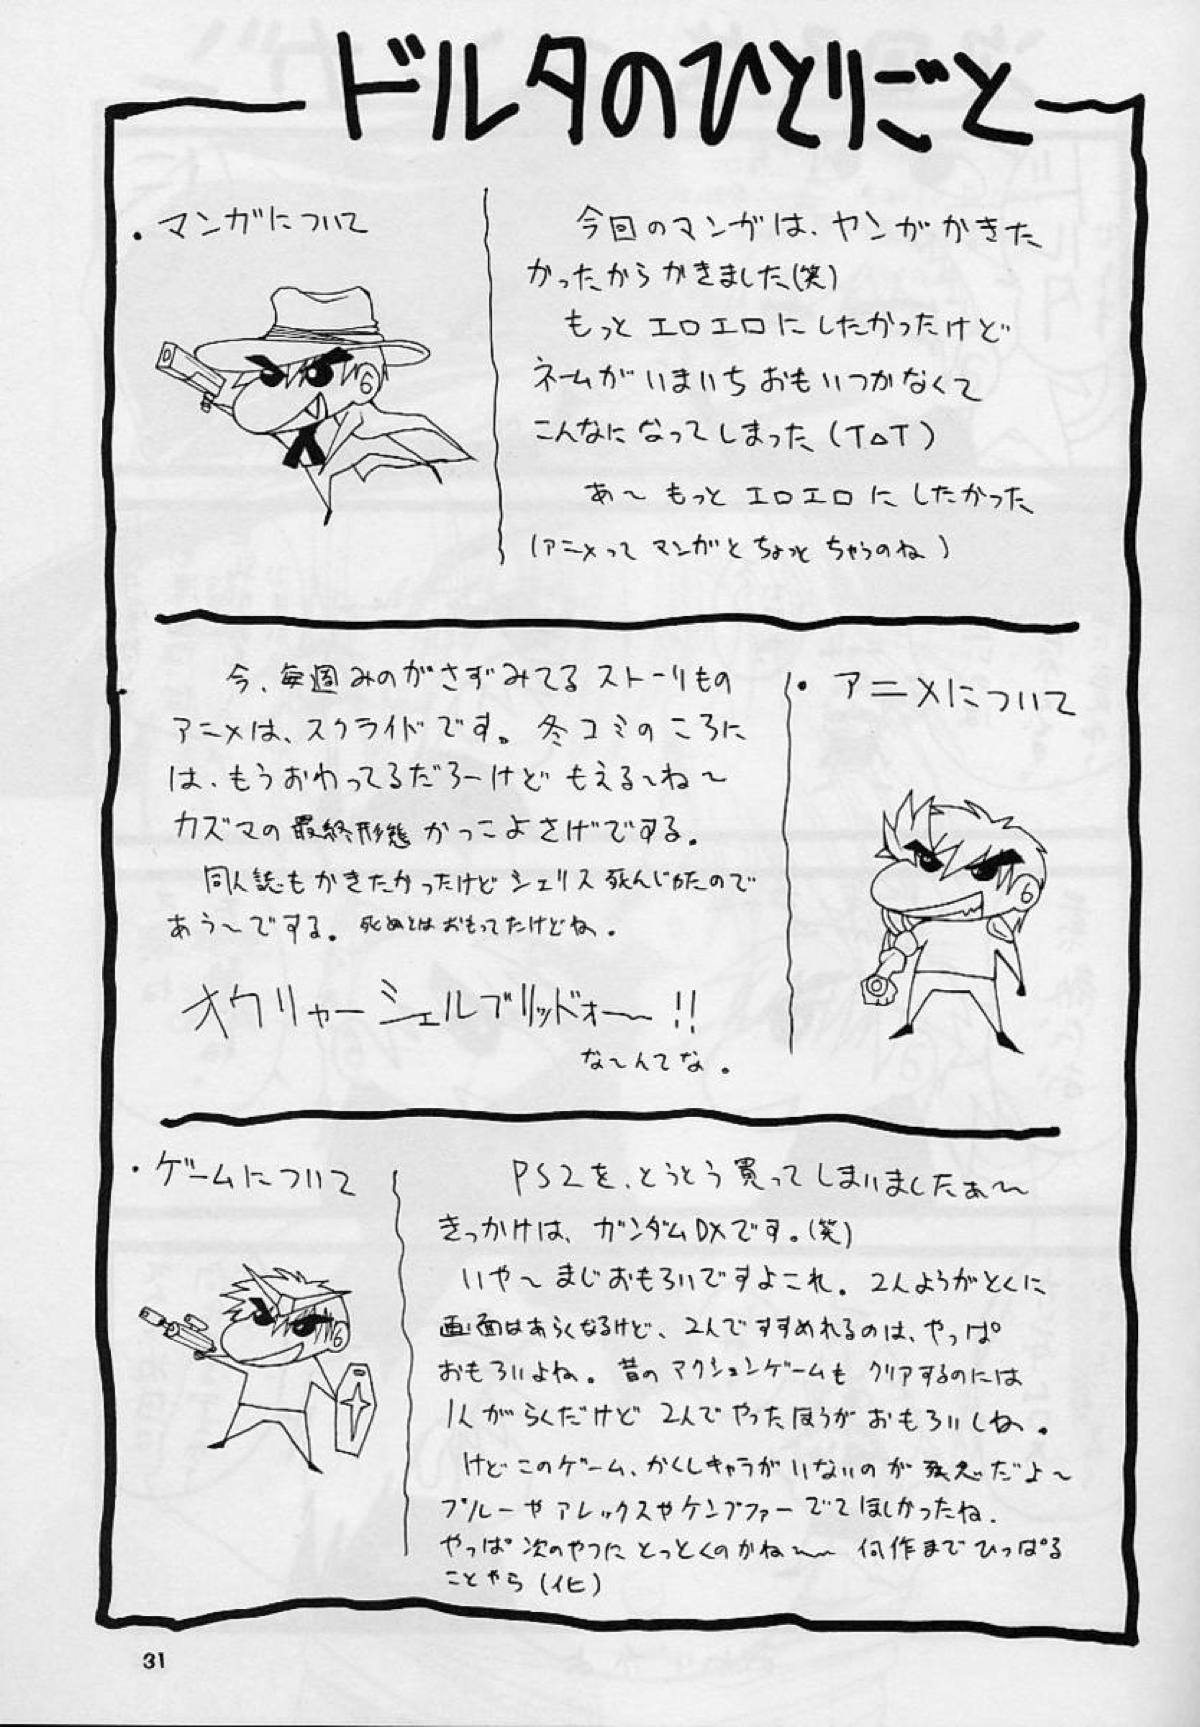 ドルタのひとりごと
・マンガについて
今回のマンガは、ヤンがかきた
かったからかきました(笑)
もっとエロエロにしたかったけど
ネームがいまいちおもいつかなくて
こんなになってしまった(T△T)
あ〜もっとエロエロにしたかった
(アニメってマンガとちょっとちゃうのね)
・アニメについて
今、毎週みのがさずみてるストーリもの
アニメは、スクライドです。冬コミのころに
は、もうおわってるだろーけどもえる〜ね〜
カズマの最終形態かっこよさげでする。
同人誌もかきたかったけどシェリス死んじゃたので
あう〜でする。死ぬとはおもってたけどね。
オウリャーシェルブリッドォ〜!!
な〜んてな。
・ゲームについて
PS2を、とうとう買ってしまいましたぁ〜
きっかけは、ガンダムDXです。(笑)
いや〜まじおもろいですよこれ。2人ようがとくに
画面はあらくなるけど、2人ですすめれるのは、やっぱ
おもろいよね。昔のアクションゲームもクリアするのには
1人がらくだけど2人でやったほうがおもろいしね。
けどこのゲーム、かくしキャラがいないのが残念だよ〜
プルーやアレックスやケンプファーでてほしかったね.
やっぱ次のやつにとっとくのかね〜〜何作までひっぱる
ことやら(化)
31